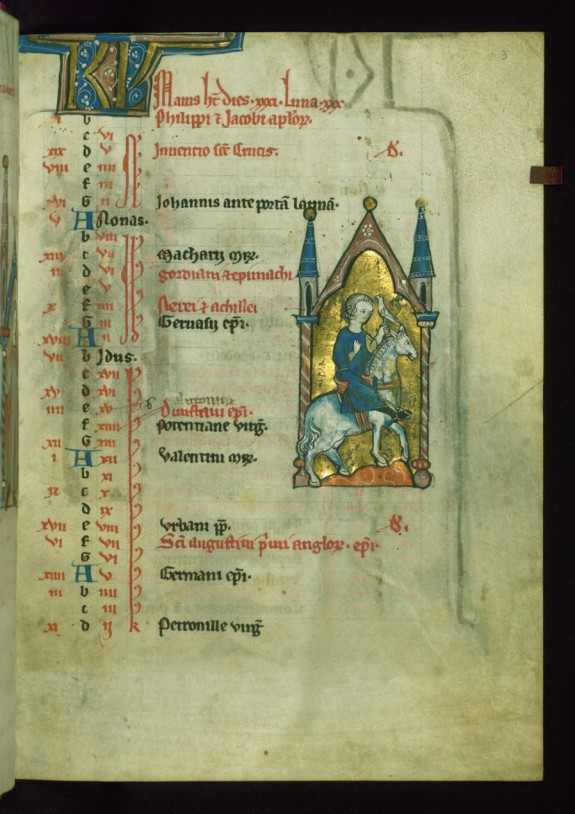 KL Maius ht dies xxxi luna xxx
b Philippi ⁊ Jacobi aplor
c vi
xix d v Inventio sce Crucis.
viii e iiii
f iii
xvi G ii Johannis ante portam latina
v A Nonas.
b viii
xiii c vii Macharii mr.
ii d vi gordiani ⁊ epimachi
x f iiii Nerei ⁊ achillei
G iii Gervasii epi.
xviii A ii
vii b Idus.
c xvii
xv d xvi
iiii e xv Dunstani epi.
f xiiii Potentiane virg.
xii G xiii
i A xii Valentini mr.
b xi
ix c x
d ix
xvii e viii Urbani pp.
vi f vii Sci augustini primi anglor. epi.
G vi
xiiii A v Germani epi.
iii b iiii
c iii
xi d ii k Petronille virg
3